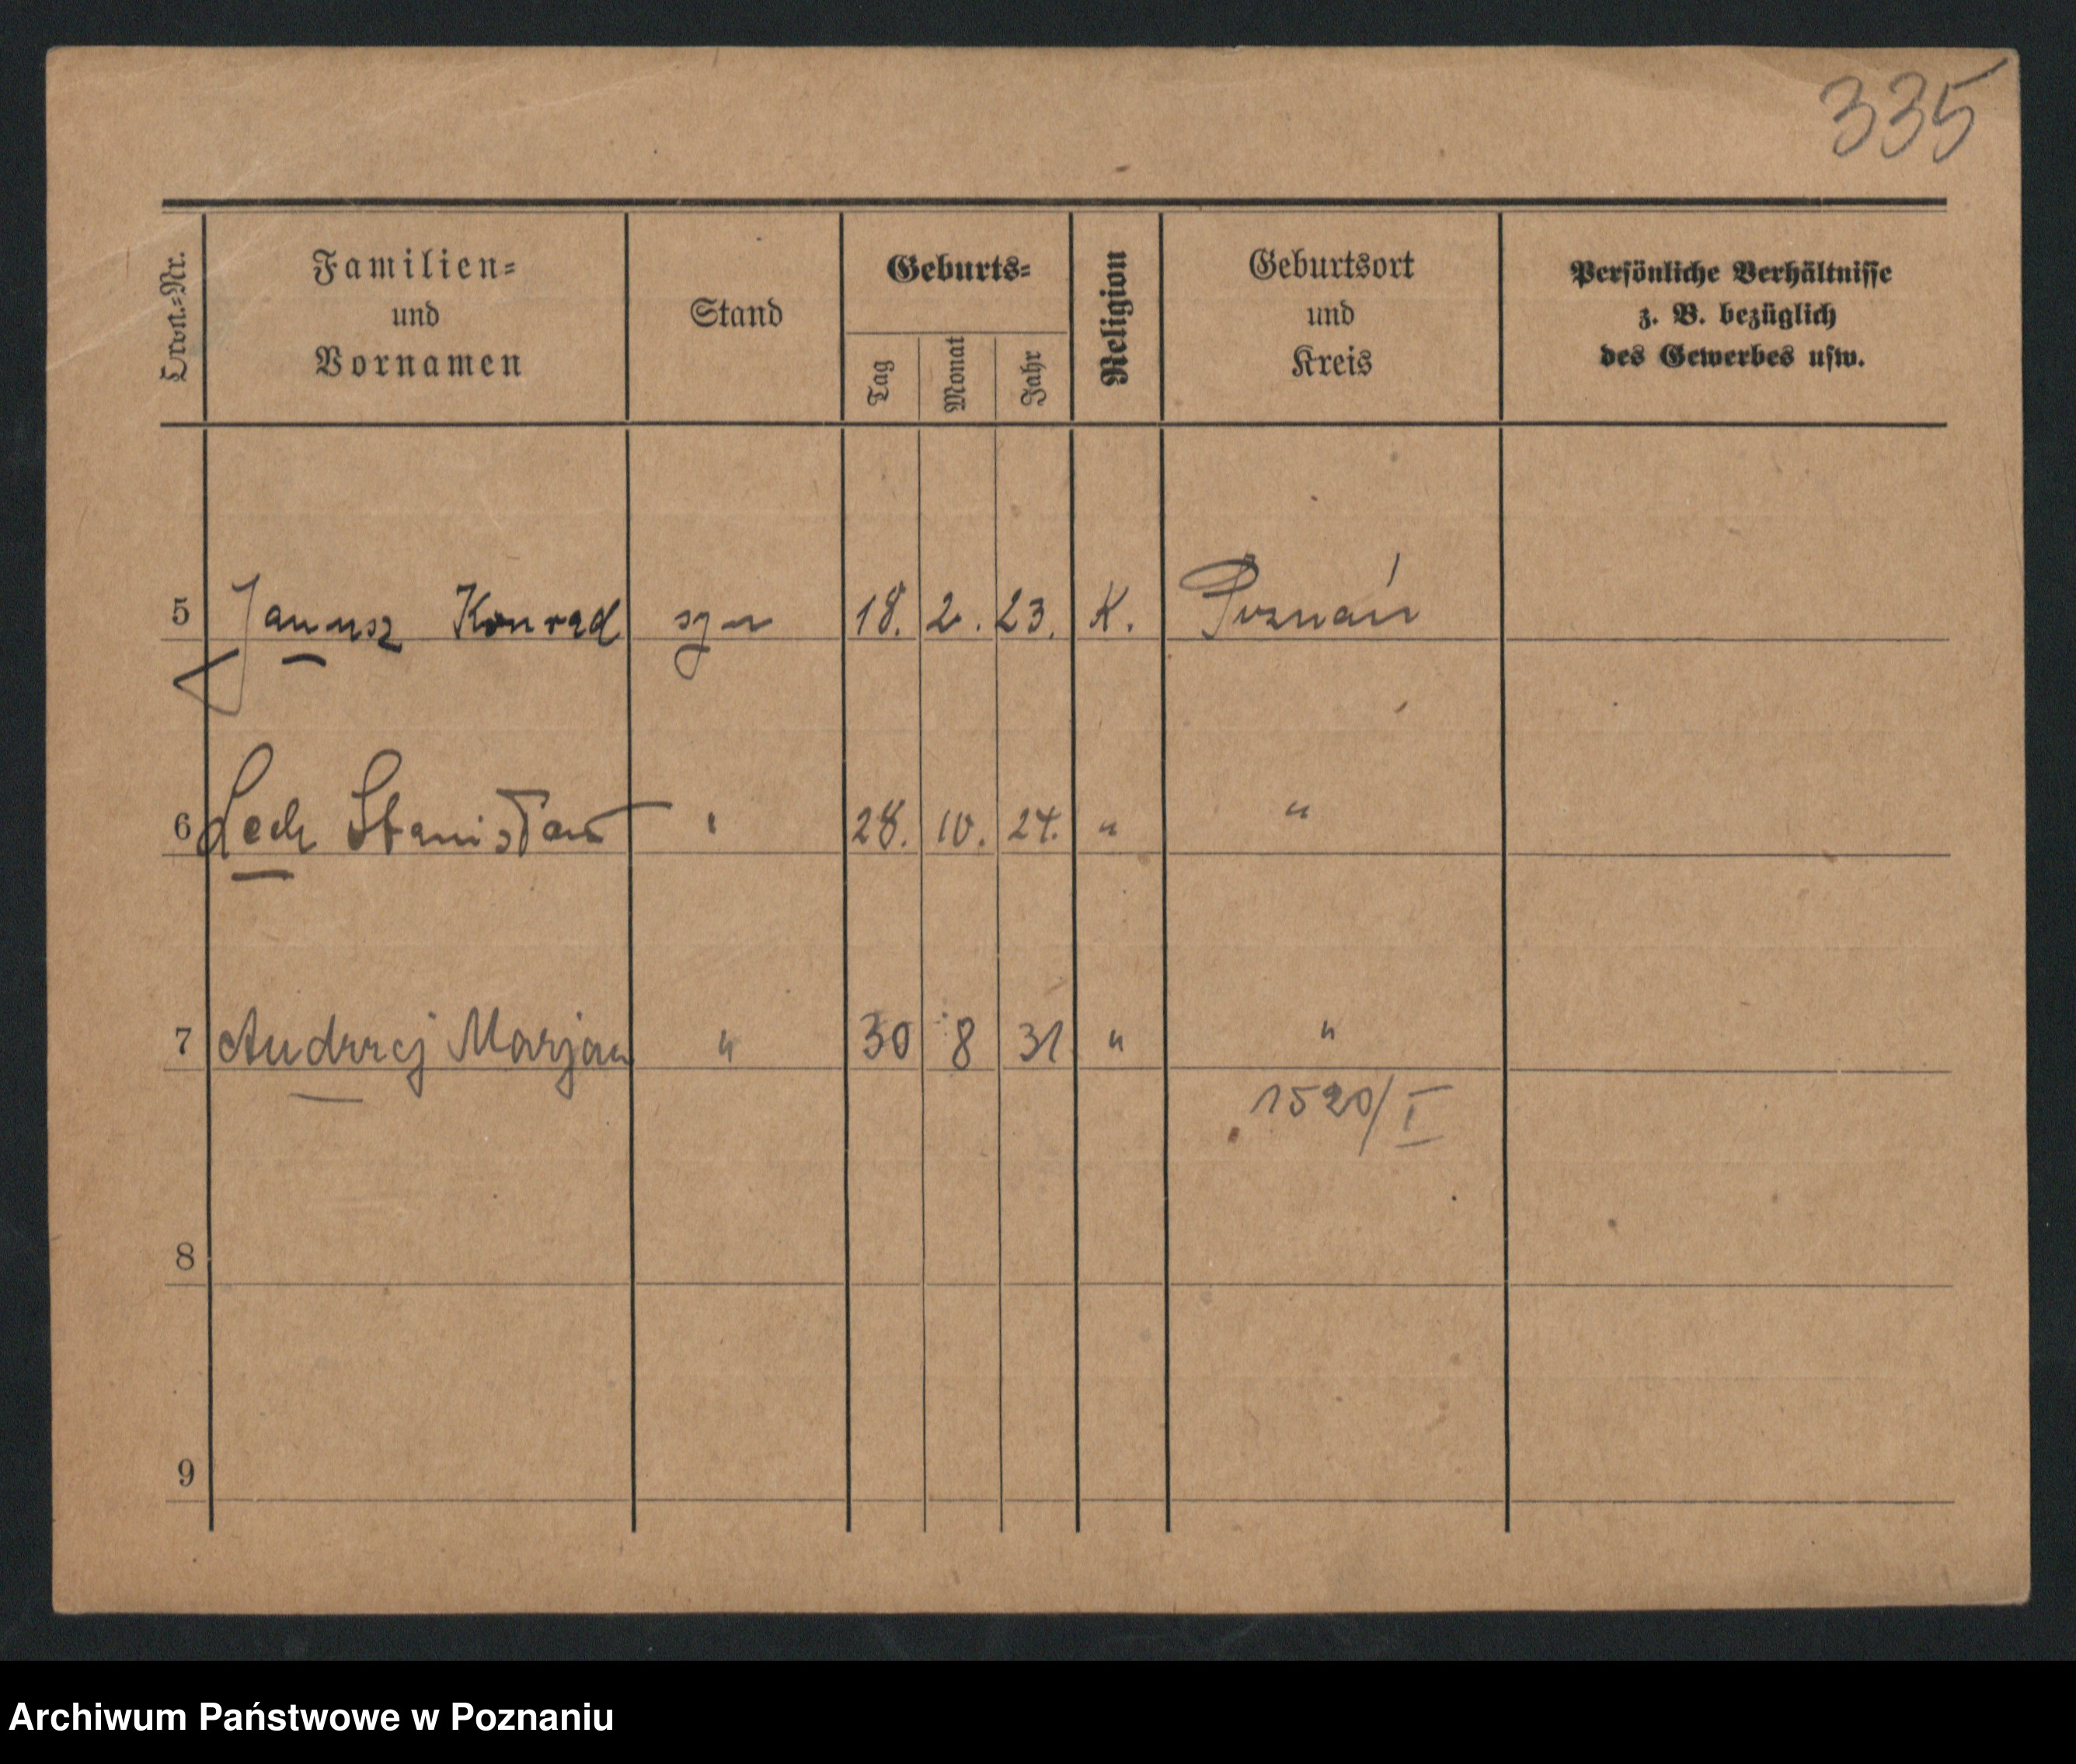 335
Ordn.-Nr.
Familien-
und
Vornamen
Stand
Geburts-
Tag
Monat
Jahr
Religion
Geburtsort
und
Kreis
Persönliche Verhältnisse
z. B. bezüglich
des Gewerbes usw.
5 Janusz Konrad syn 18. 2. 23. K. Poznań
6 Lech Stanisław " 28. 10. 24. " "
7 Andrzej Marjan " 30 8 31 " "
1520/I
8
9
Archiwum Państwowe w Poznaniu